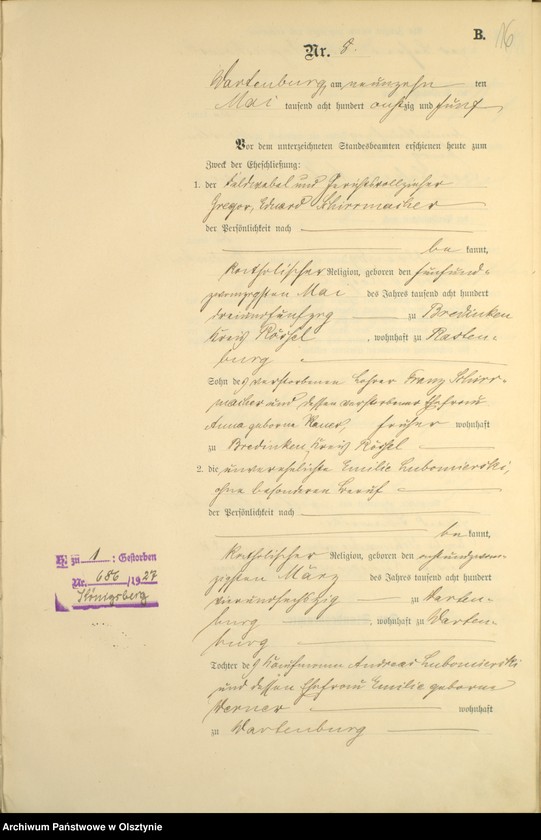 B.
16
Nr. 8.
Wartenburg, am neunzehn ten
Mai tausend acht hundert achtzig und fünf
Vor dem unterzeichneten Standesbeamten erschienen heute zum
Zweck der Eheschließung:
1. der Feldwebel und Gerichtsvollzieher
Gregor, Eduard Schirrmacher
der Persönlichkeit nach
be kannt,
katholischer Religion, geboren den fünfund-
zwanzigsten Mai des Jahres tausend acht hundert
dreiundfünfzig zu Bredinken
Kreis Rössel, wohnhaft zu Rasten-
burg
Sohn des verstorbenen Lehrer Franz Schirr-
macher und dessen verstorbener Ehefrau
Anna geborne früher wohnhaft
zu Bredinken, Kreis Rössel
2. die unverehelichte Emilie Lubomierski,
ohne besonderen Beruf
der Persönlichkeit nach
be kannt,
katholischer Religion, geboren den achtundzwan-
zigsten März des Jahres tausend acht hundert
vierundsechszig zu Warten-
burg, wohnhaft zu Warten-
burg
Tochter des Kaufmann Andreas Lubomierski
und dessen Ehefrau Emilie geborne
Werner wohnhaft
zu Wartenburg
H. zu 1 : Gestorben
Nr. 686/1927
Königsberg
Archiwum Państwowe w Olsztynie